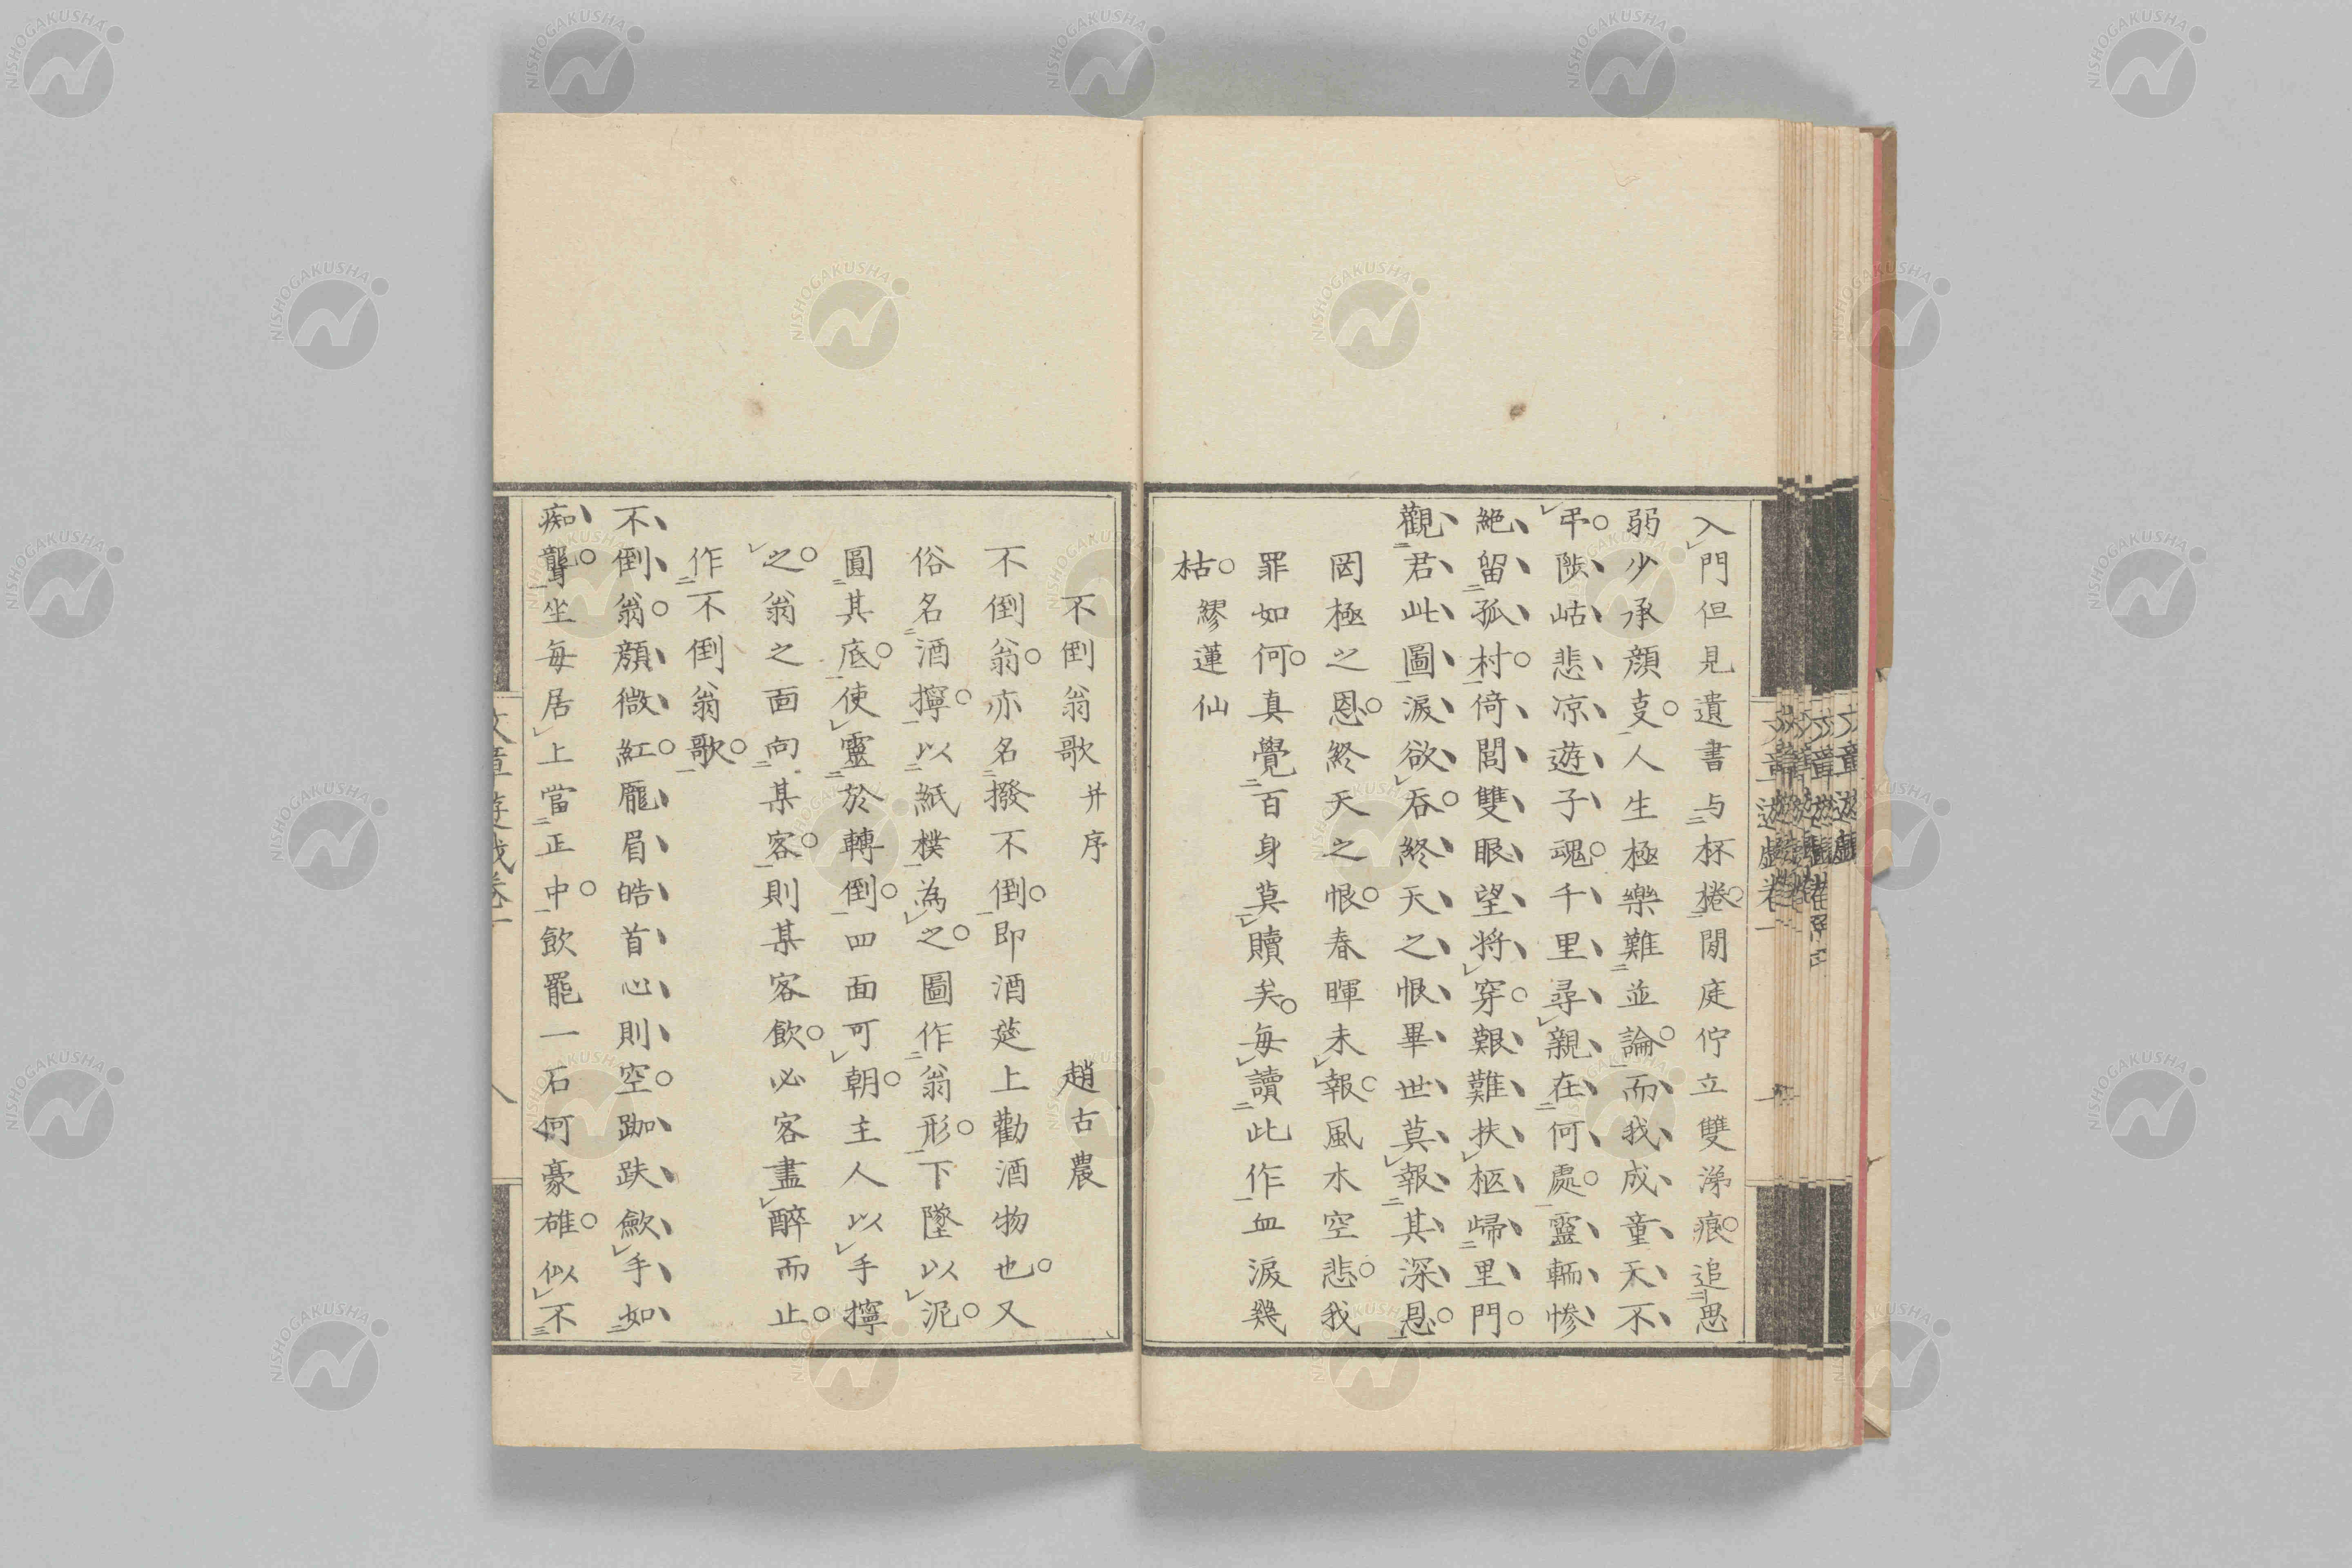 入門但見遺書与杯棬。閒庭佇立雙涕痕。追思
弱少承顔㕝。人生極樂難並論。而我成童天不
弔。陟岵悲凉遊子魂。千里尋親在何處。靈輀惨
絶留孤村。倚閭雙眼望將穿。艱難扶柩歸里門。
觀君此圖淚欲吞。終天之恨畢世莫報其深恩。
罔極之恩。終天之恨。春暉未報。風水空悲。我
罪如何。真覺百身莫贖矣。每讀此作血淚幾
枯。繆蓮仙
不倒翁歌 并序 趙古農
不倒翁。亦名撥不倒。即酒筵上勸酒物也。又
俗名酒擰。以紙樸為之。圖作翁形。下墜以泥。
圓其底。使靈於轉倒。四面可朝。主人以手擰
之。翁之面向某客。則某客飲。必客盡醉而止。
作不倒翁歌。
不倒翁。顔微紅。厖眉皓首心則空。跏趺歛手如
痴聾。坐每居上當正中。飲罷一石何豪雄。似不
文章遊戲卷一
八
文章遊戲卷一
NISHOGAKUSHA